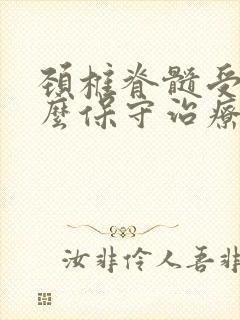 頚椎脊髓受
麼保守治療
汝非伶人吾非